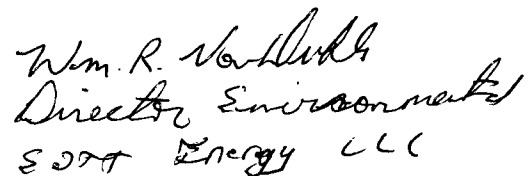 Wm. R. Von Drehle
Director Environmental
EOTT Energy LLC